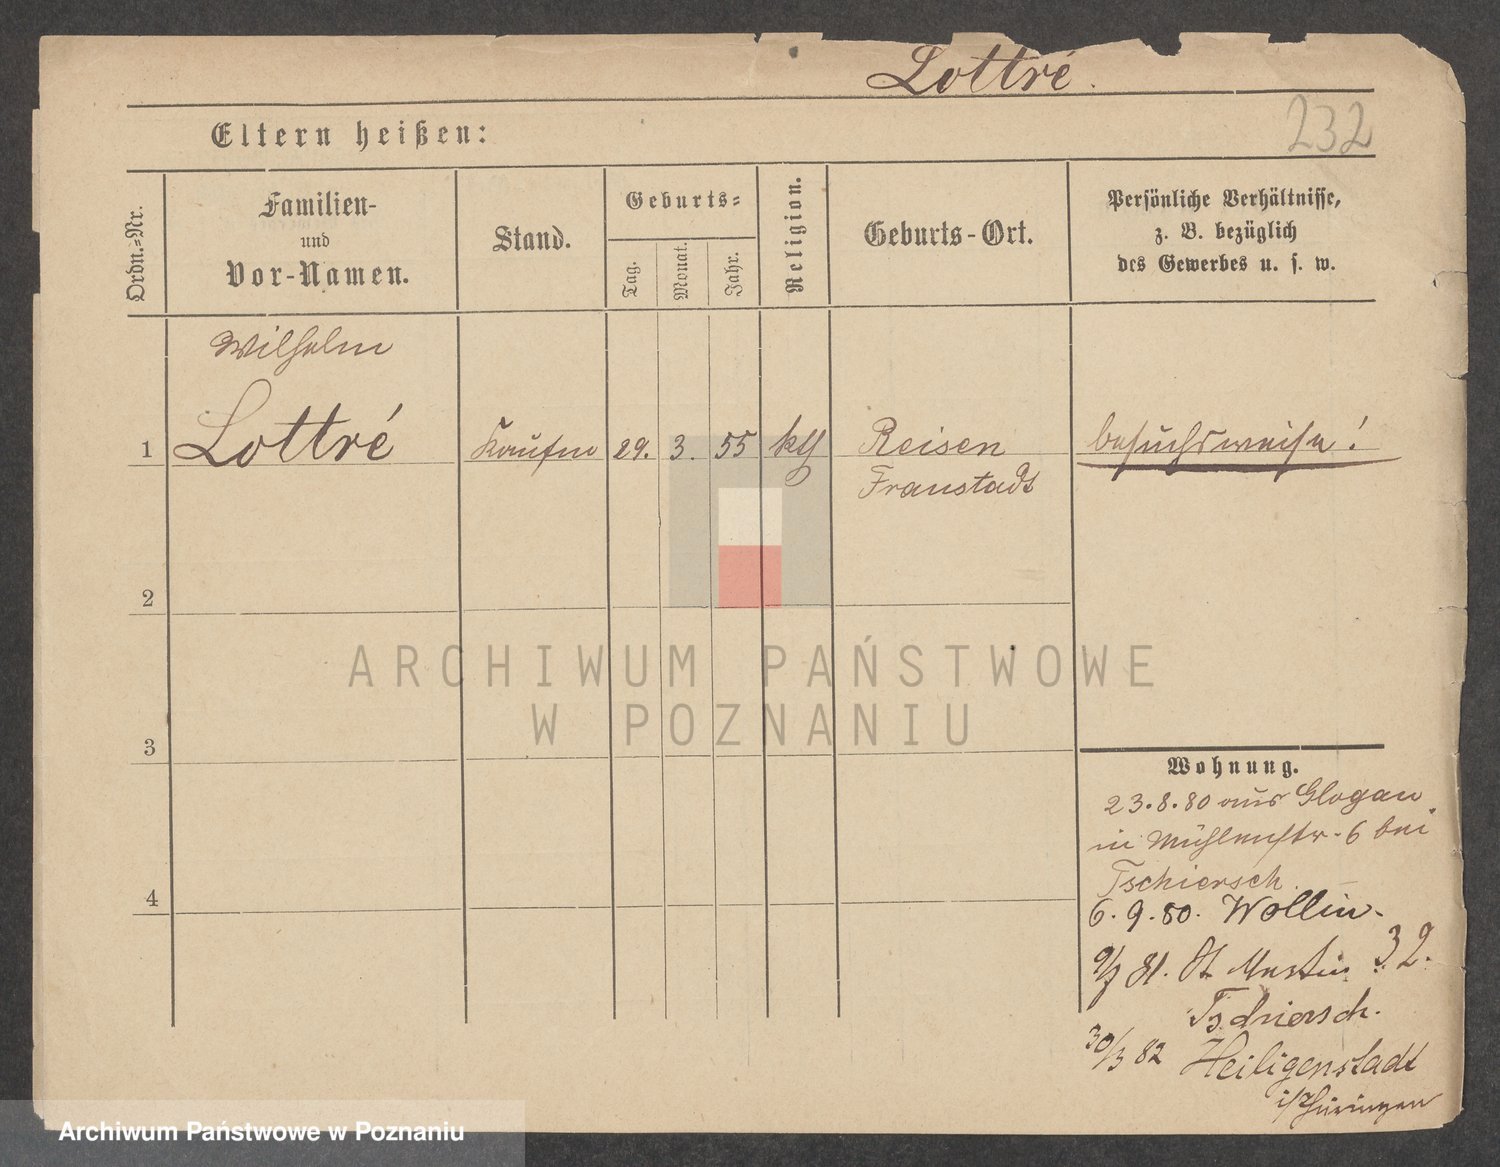 Lottré.
232
Eltern heißen:
Ordn.-Nr.
Familien-
und
Vor-Namen.
Stand.
Geburts-
Tag.
Monat.
Jahr.
Religion.
Geburts-Ort.
Persönliche Verhältnisse,
z. B. bezüglich
des Gewerbes u. s. w.
Wilhelm
1 Lottré Kaufm 29. 3. 55 kth Reisen besuchsweise!
Fraustadt
2
3
4
Wohnung.
23.8.80 aus Glogau
in Mühlenstr. 6 bei
Tschiersch.
6.9.80. Wollin.
9/7 81. St Martin 32.
Tschiersch.
30/3 82 Heiligenstadt
i/Thüringen
ARCHIWUM PAŃSTWOWE
W POZNANIU
Archiwum Państwowe w Poznaniu